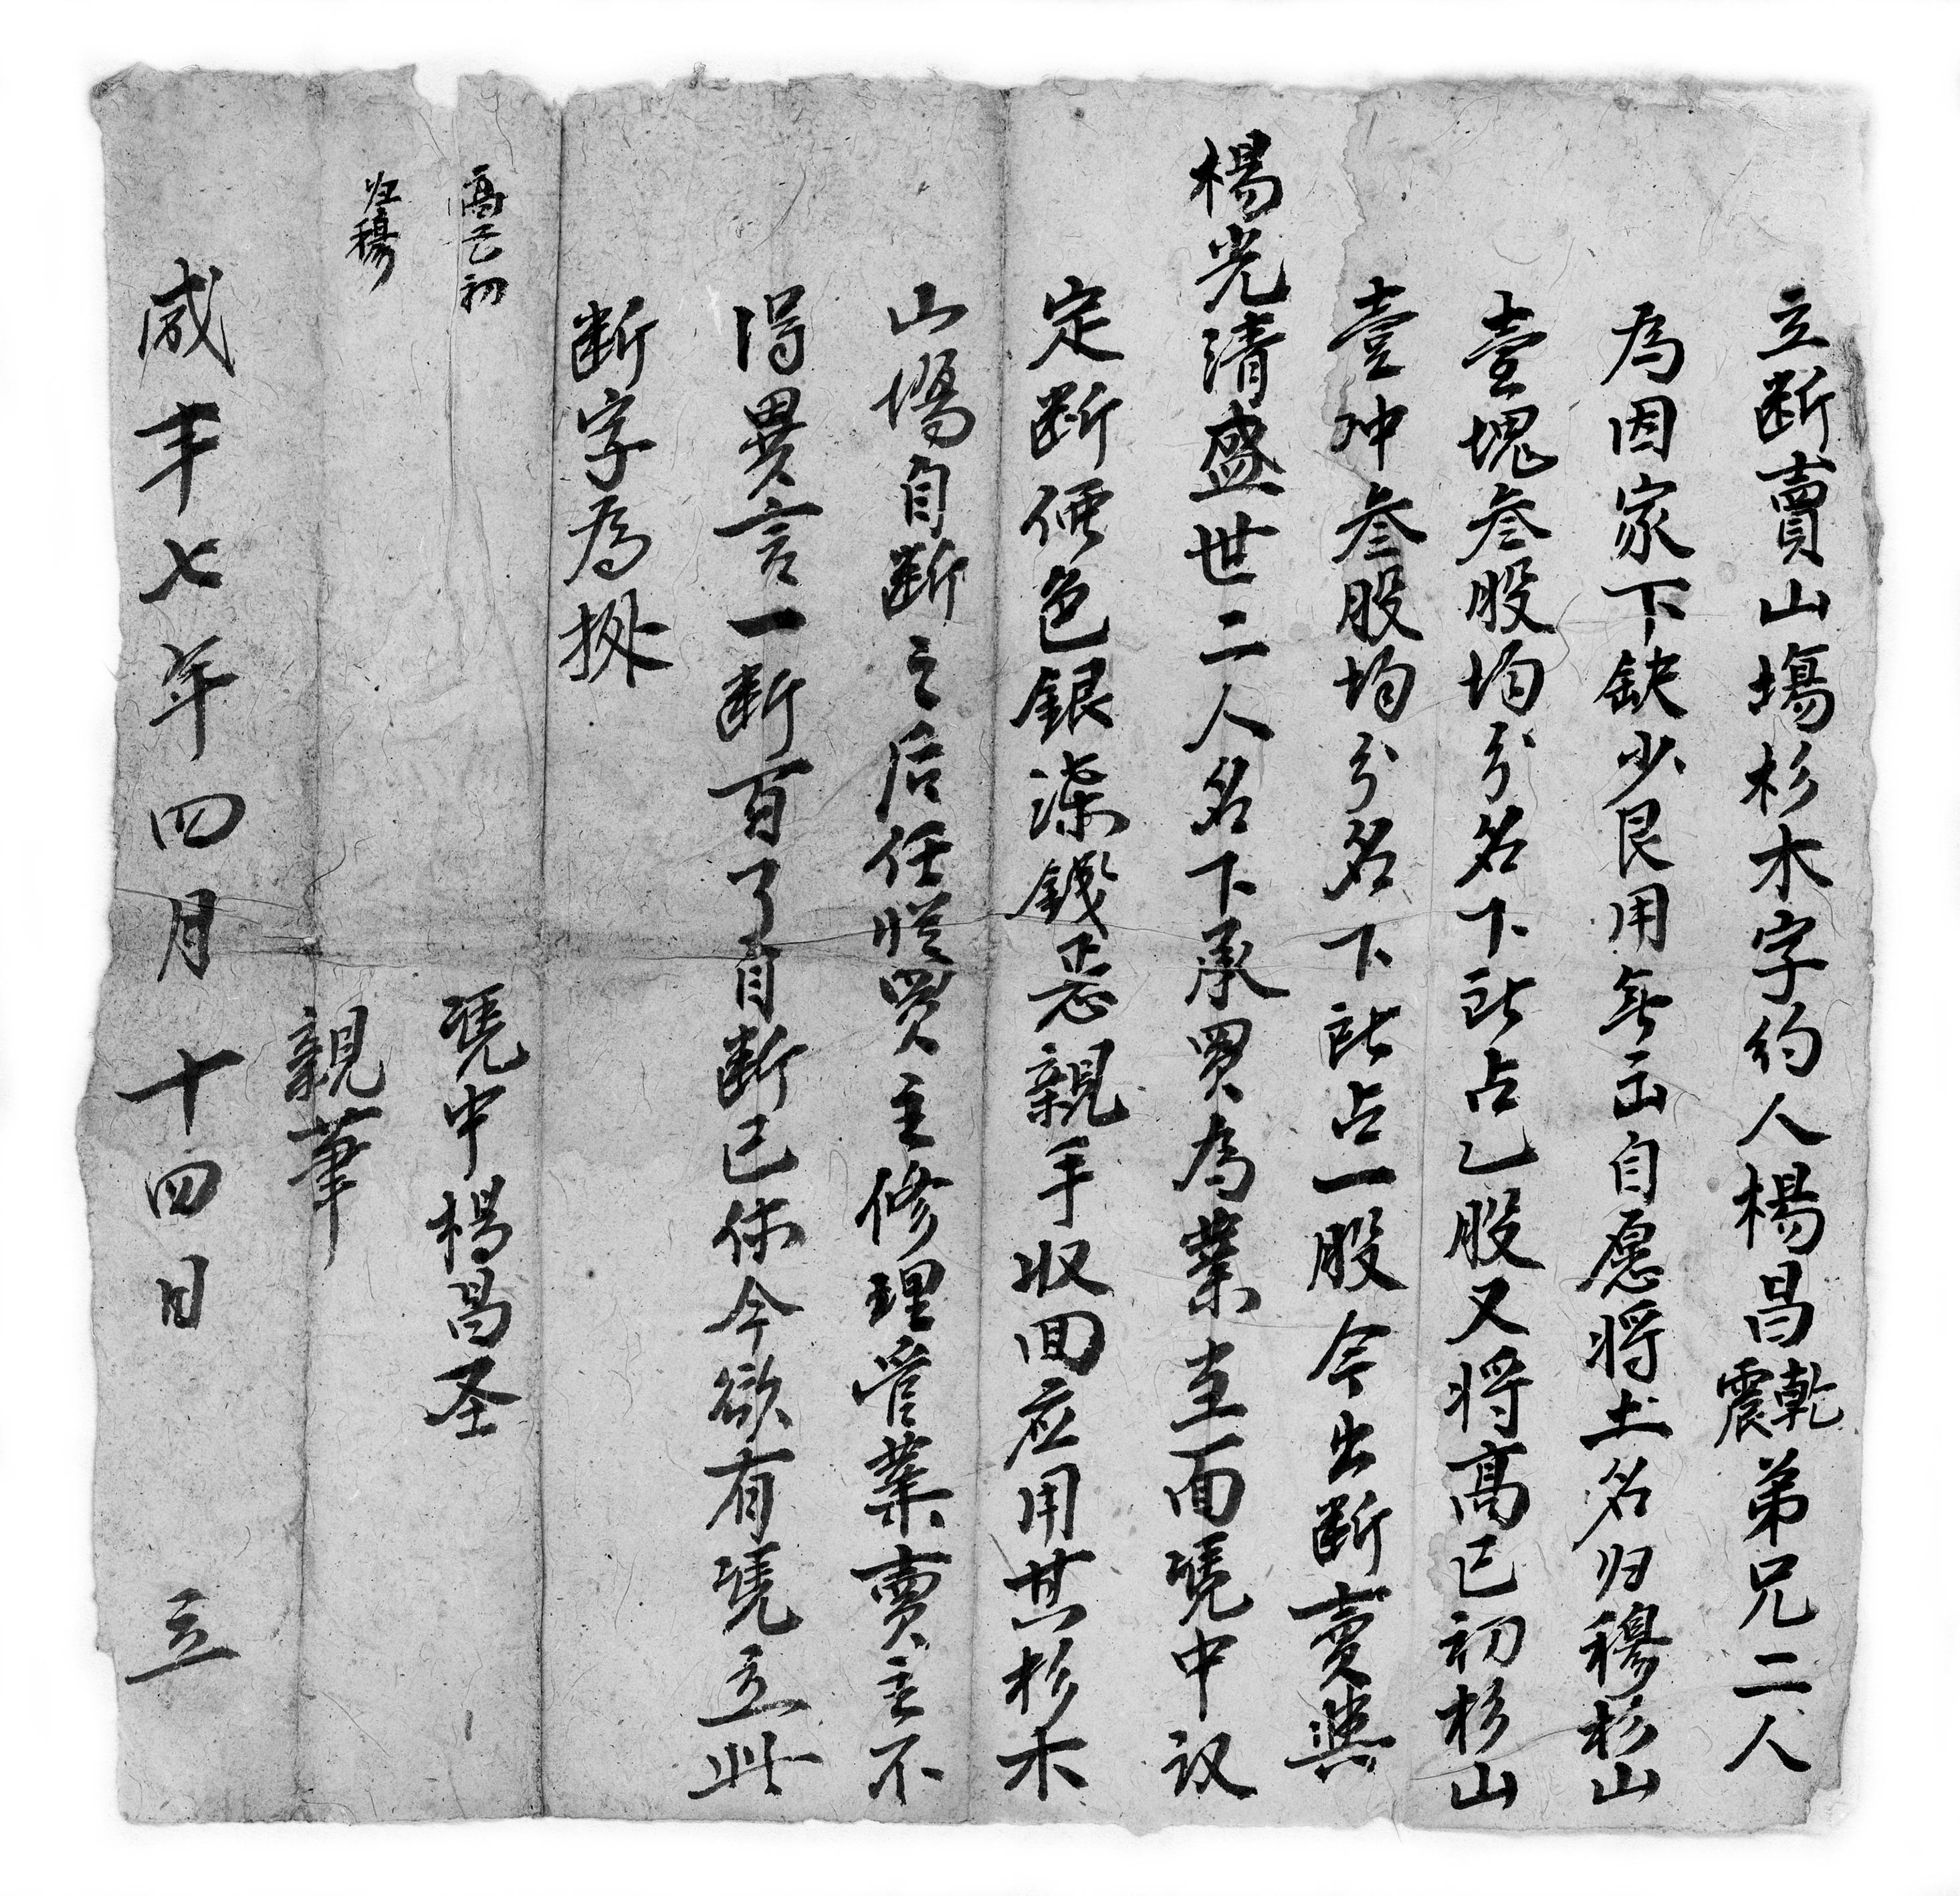 立断賣山塲杉木字約人楊昌乾震弟兄二人
為因家下缺少艮用無出自愿将土名归穆杉山
壹塊叁股均分名下所占乙股又将高已初杉山
壹冲叁股均分名下所占一股今出断賣與
楊光清盛世二人名下承買為業当面凴中议
定断價色銀柒錢正亲親手収回应用其杉木
山塲自断之后任從買主修理管業賣主不
淂異言一断百了自断已作今欲有凴立此
断字為拠
高已初
归穆
凴中楊昌圣
親筆
咸丰七年四月十四日立